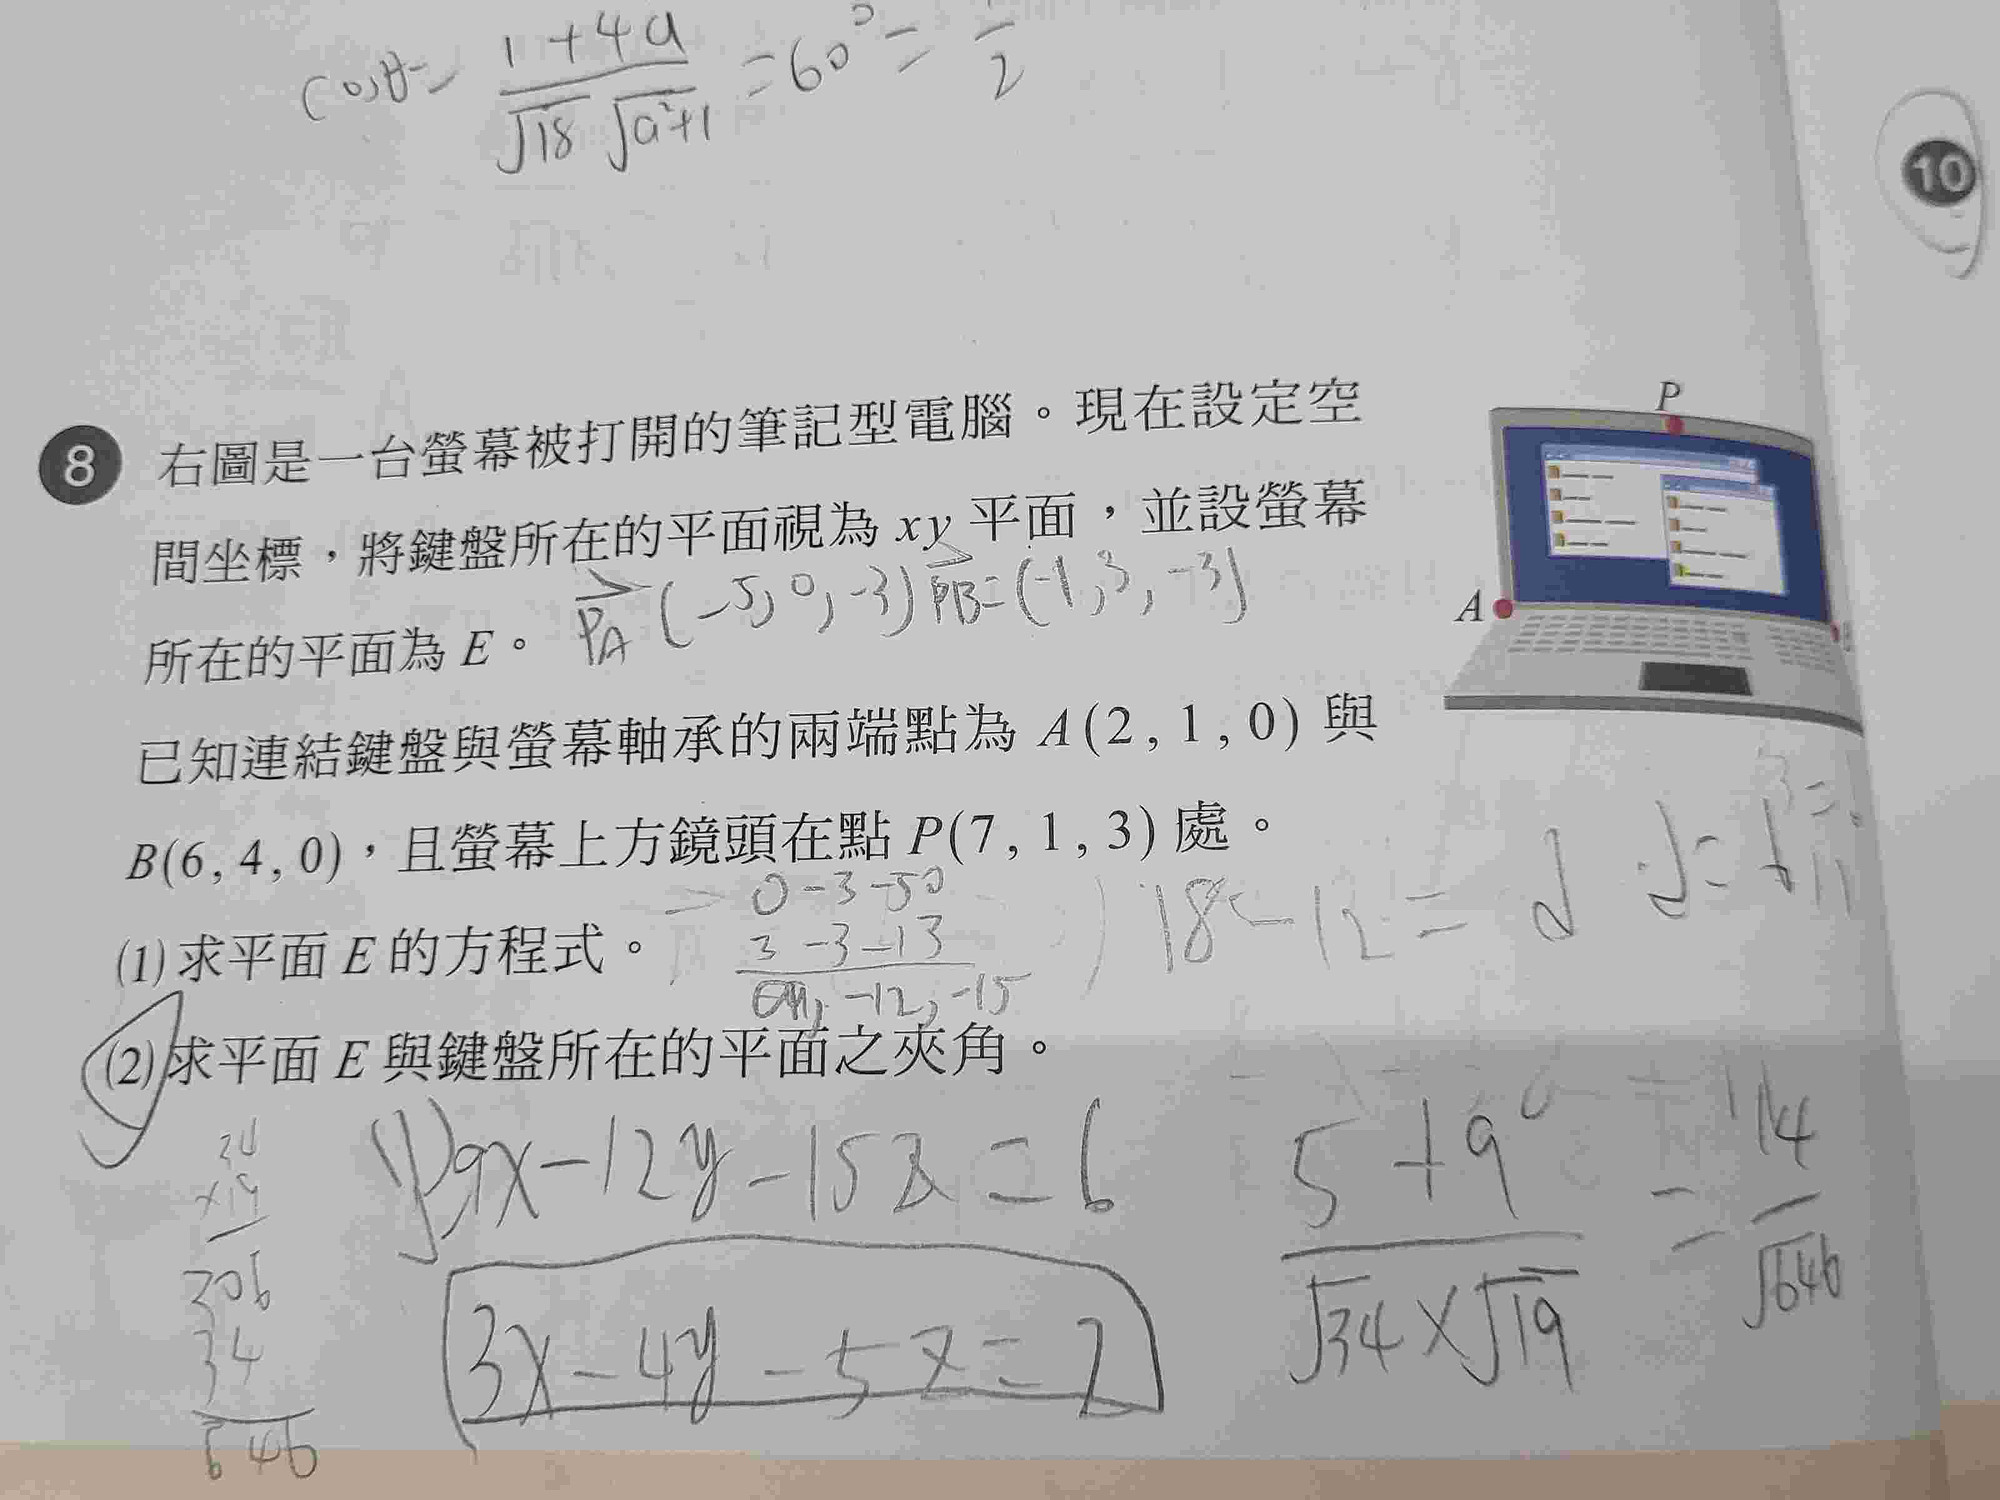 cosθ = 1+4a / √18 √a²+1 = 60° = 1/2
10
8 右圖是一台螢幕被打開的筆記型電腦。現在設定空
間坐標，將鍵盤所在的平面視為 xy 平面，並設螢幕
所在的平面為 E。
PA (-5, 0, -3) PB = (-1, 3, -3)
P
A
已知連結鍵盤與螢幕軸承的兩端點為 A(2, 1, 0) 與
B(6, 4, 0)，且螢幕上方鏡頭在點 P(7, 1, 3) 處。
0 -3 -5 0
3 -3 -1 3
-12, -15
18 - 12 =
(1) 求平面 E 的方程式。
(2) 求平面 E 與鍵盤所在的平面之夾角。
1) 9x - 12y - 15z = 6
3x - 4y - 5z = 2
5 + 9 / √34 × √19 = 14 / √646
34
×19
306
34
646